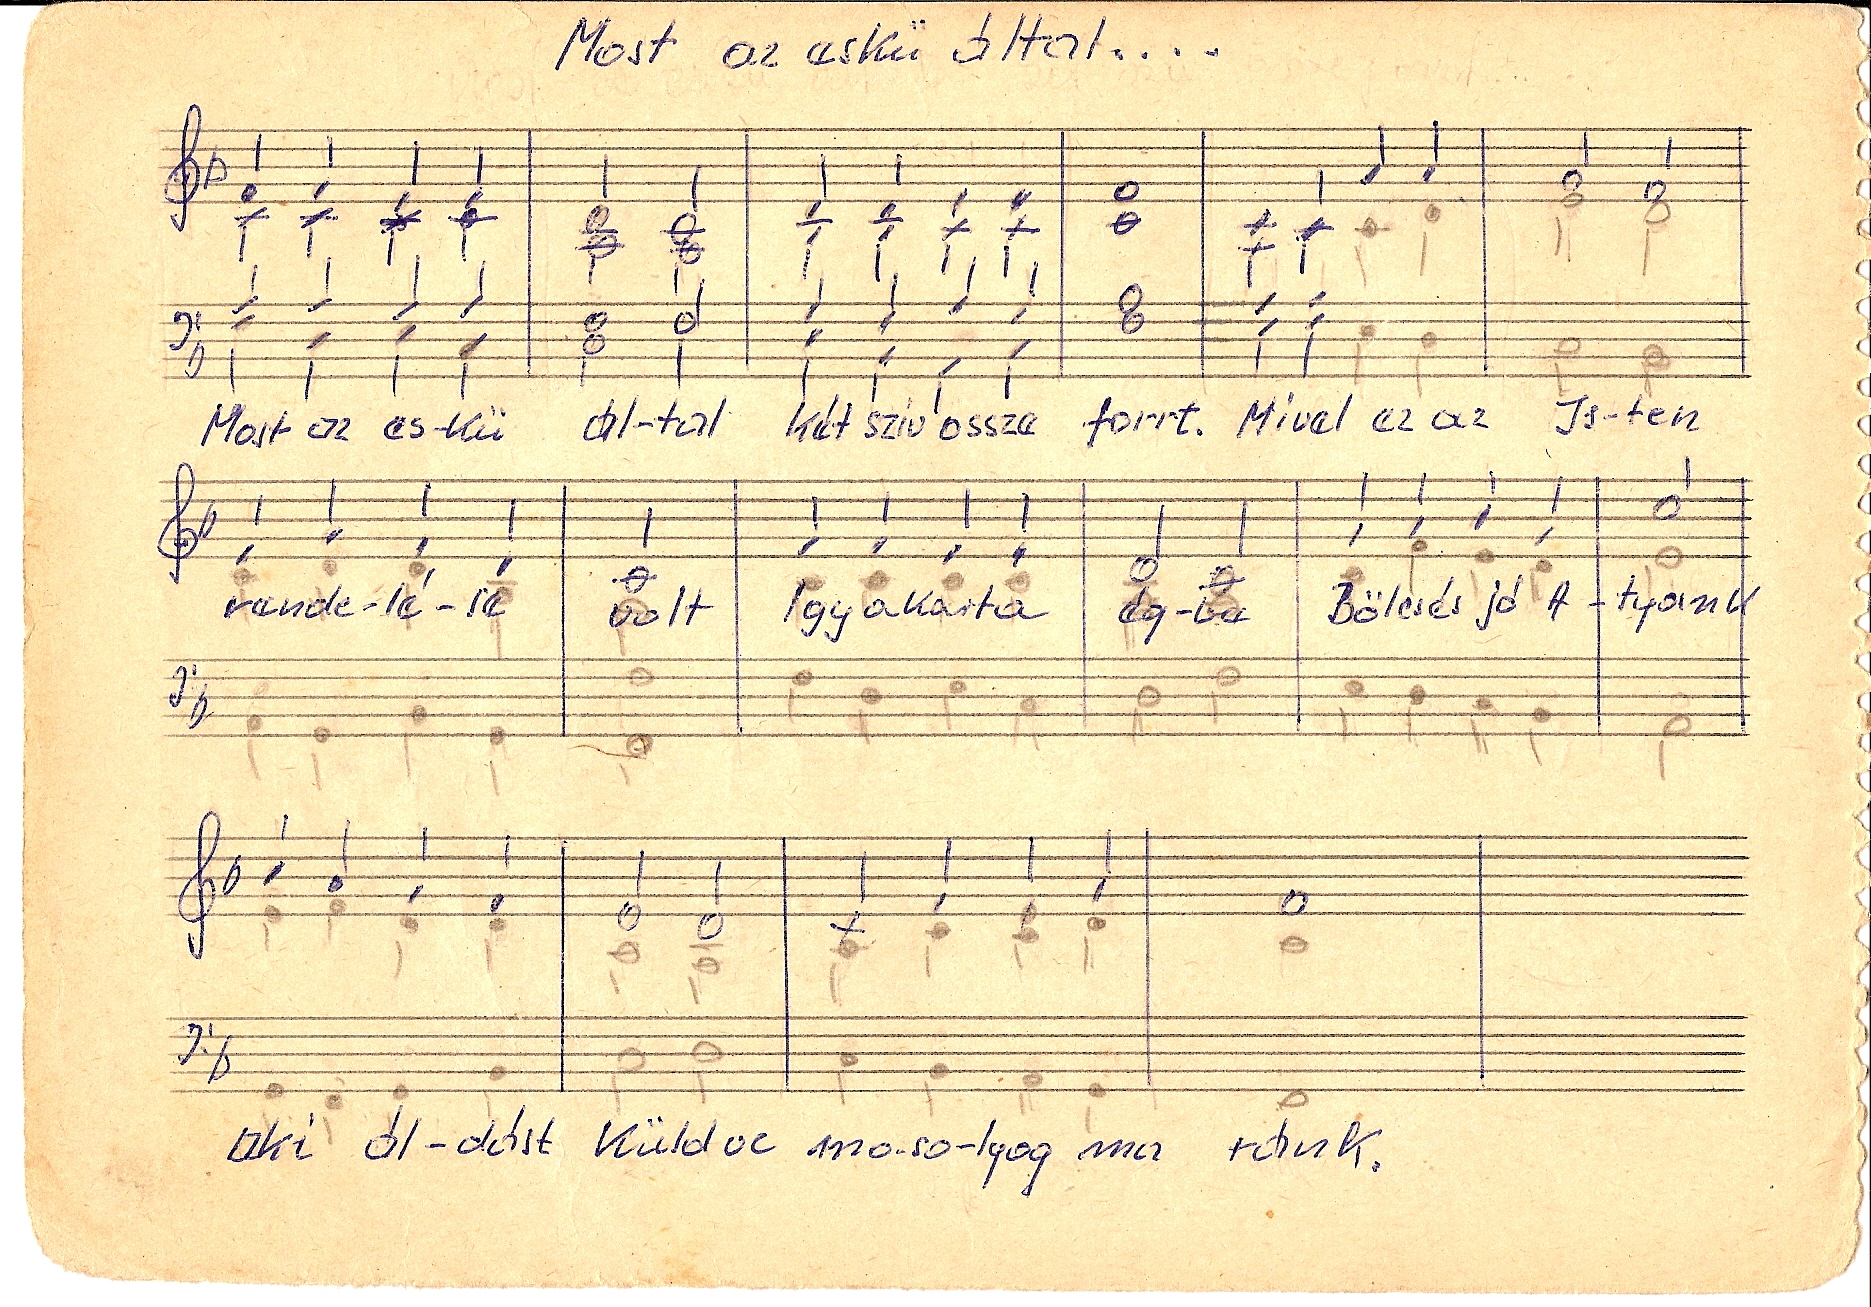 Most az eskü által....
Most az es-kü ál-tal két szív össze forrt. Mivel ez az Is-ten
rende-lé-se volt Igy akarta ég-be Bölcsés jó A-tyánk
aki ál-dást küldve mo-so-lyog ma ránk.